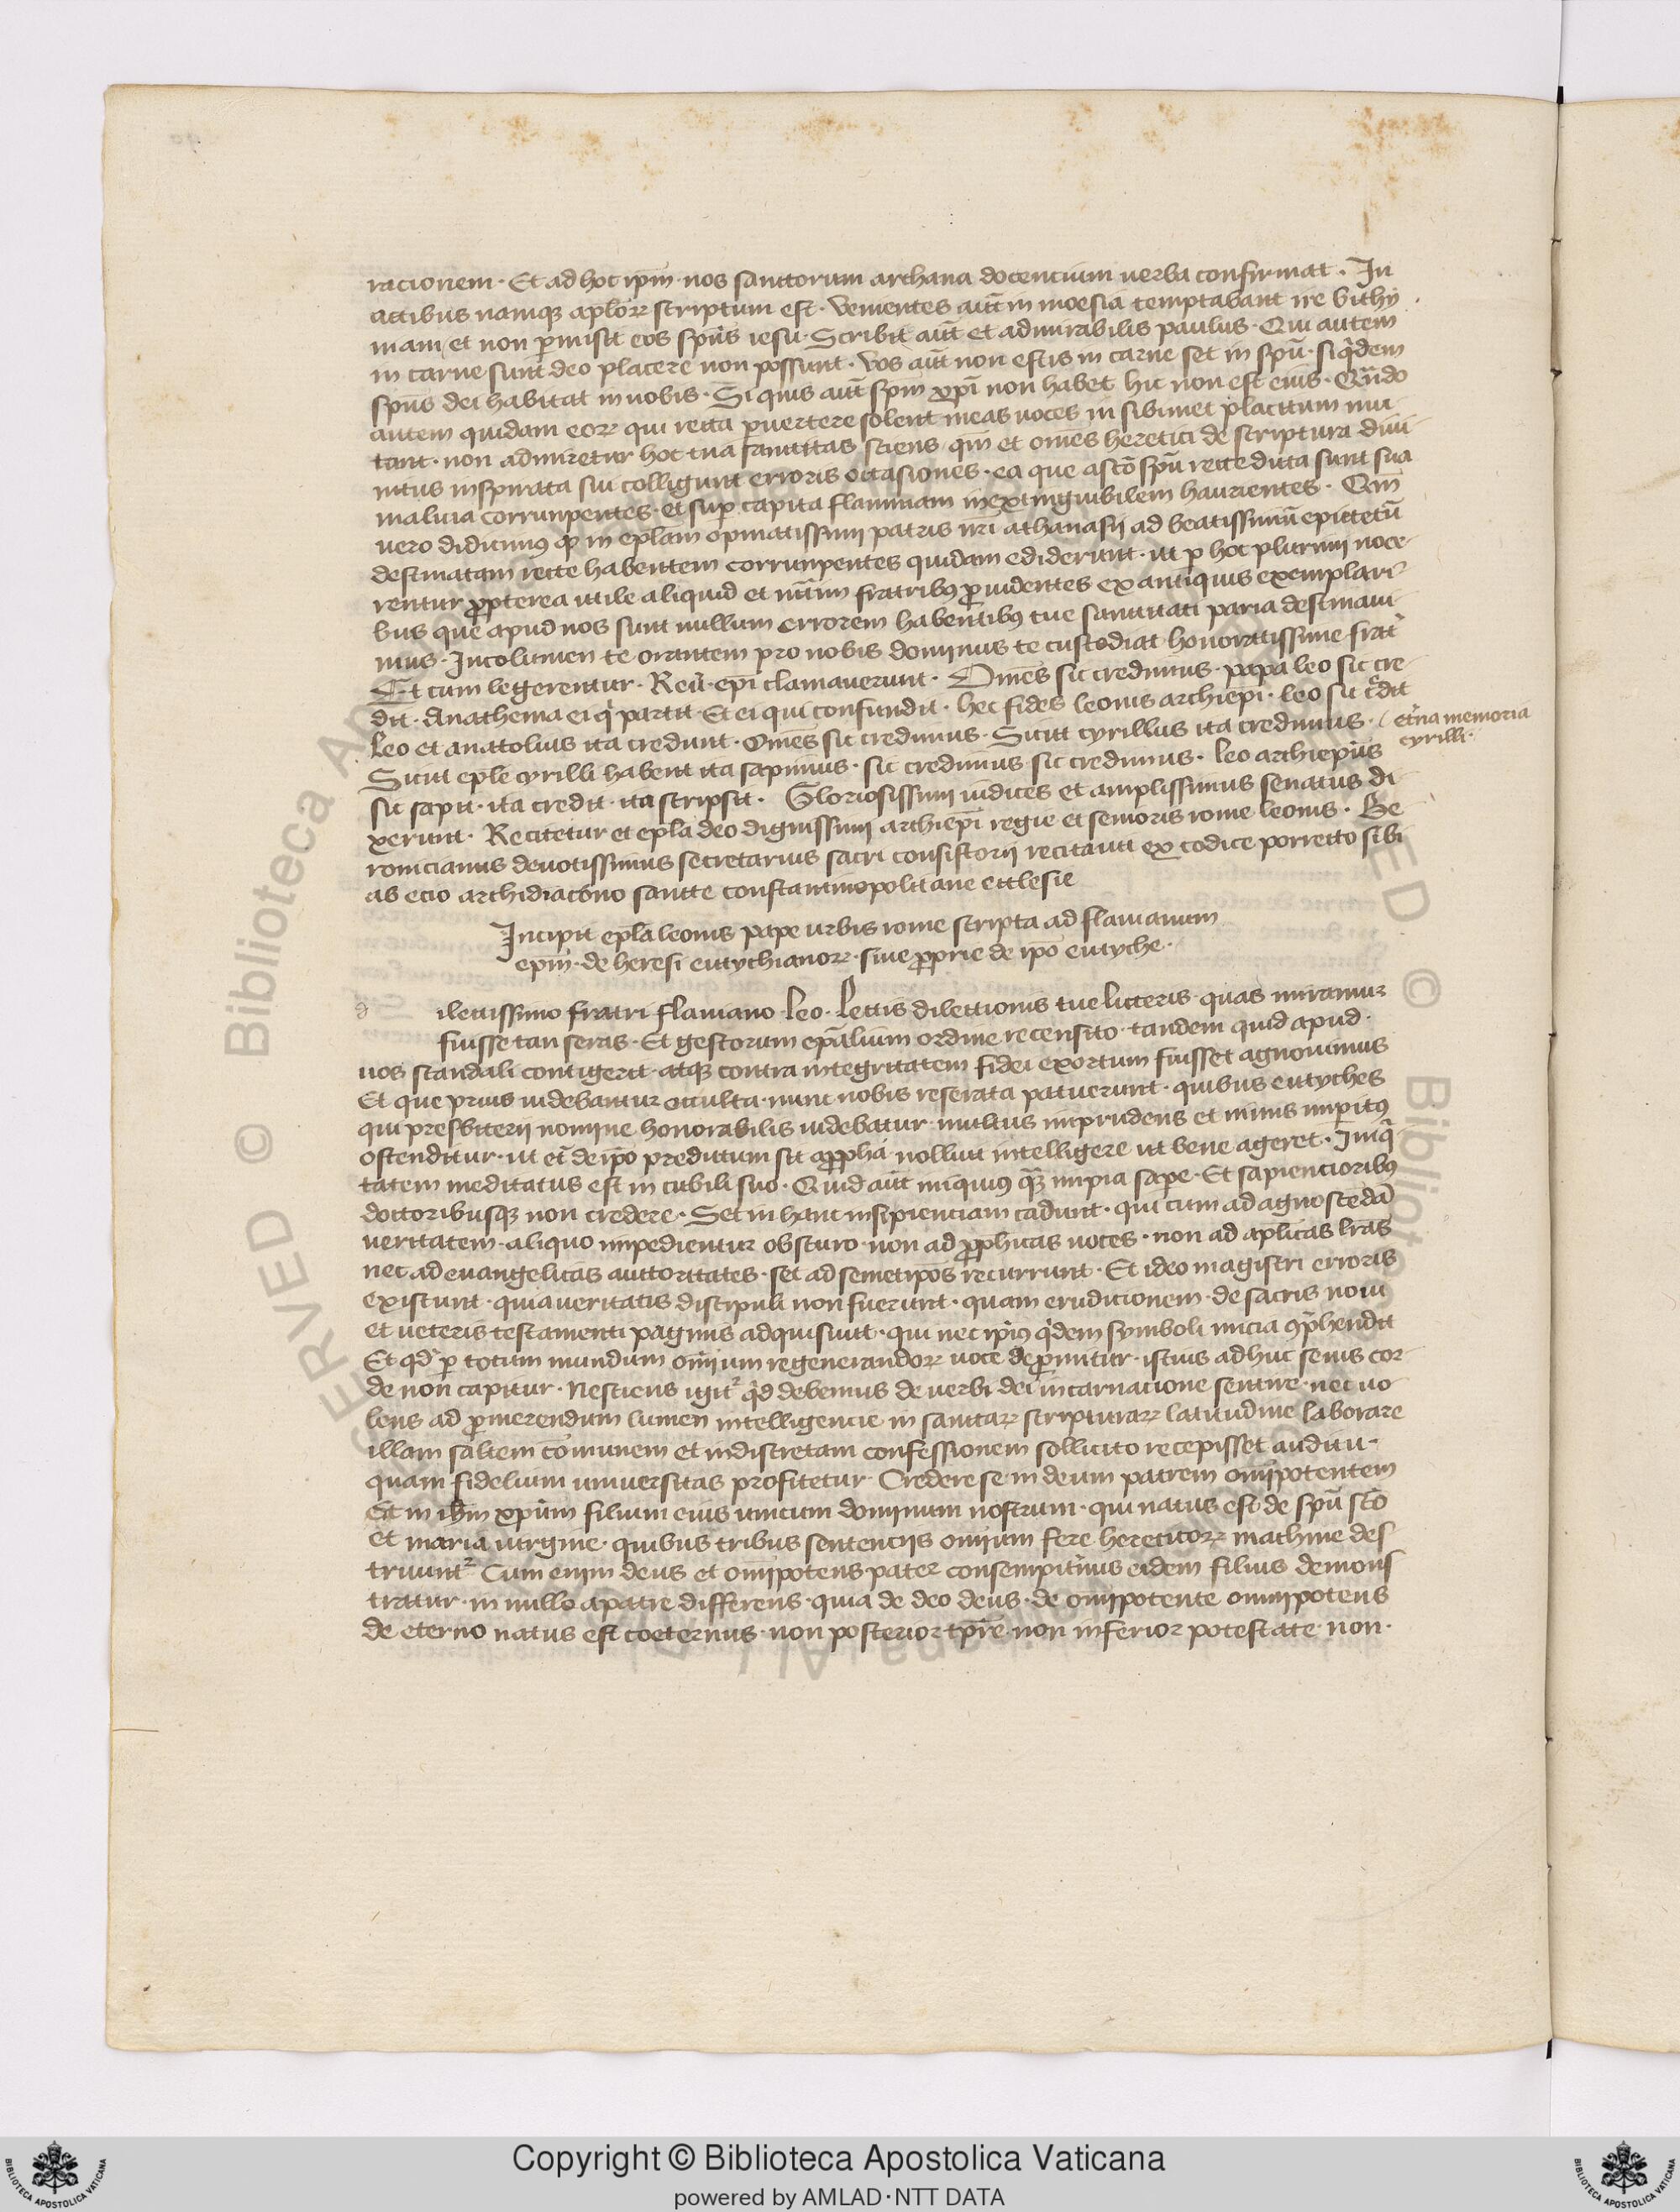 racionem · Et ad hoc ip̄m · nos sanctorum archana docencium uerba confirmat · In
actibus namqꝫ aplōꝝ scriptum est · venientes aut̄ in moesia temptabant ire bithy
niam et non ꝑmisit eos sp̄us iesu · Scribit aut̄ et admirabilis paulus · Qui autem
in carne sunt deo placere non possunt · vos aut̄ non estis in carne set in sp̄u · siqͥdem
sp̄us dei habitat in uobis · Si quis aut̄ sp̄m xp̄i non habet hic non est eius · Qn̄do
autem quidam eoꝝ qui recta ꝑuertere solent meas uoces in sibimet placitum mu
tant · non admiretur hoc tua sanctitas sciens · qm̄ et om̄es heretici de scriptura diui
nitus inspirata sui colligunt erroris occasiones · ea que a sc̄o sp̄u recte dicta sunt sua
malicia corrunpentes · et suꝑ capita flammam inextinguibilem haurientes · Qm̄
uero didicimꝰ ꝙ in ep̄lam opinatissimi patris nr̄i athanasij ad beatissimū epictetū
destinatam recte habentem corrunpentes quidam ediderunt · ut ꝑ hoc plurimi noce
rentur ꝓpterea utile aliquid et nc̄im fratribꝰ ꝓuidentes ex antiquis exemplari
bus que apud nos sunt nullum errorem habentibꝰ tue sanctitati paria destinaui
mus · Incolumen te orantem pro nobis dominus te custodiat honoratissime frat̄
Et cum legerentur · Reū · ep̄i clamauerunt · Om̄es sic credimus · papa leo sic cre
dit · Anathema ei qͥ partit · Et ei qui confundit · hec fides leonis archiep̄i · leo sic cͬdit
Leo et anatolius ita credunt · Om̄es sic credimus · Sicut cyrillus ita credimus · / et̄na memoria
cyrilli ·
Sicut ep̄le cyrilli habent ita sapimus · sic credimus sic credimus · leo archiep̄us
sic sapit · ita credit · ita scripsit · Gloriosissimi iudices et amplissimus senatus di
xerunt · Recitetur et ep̄la deo dignissimi archiep̄i regie et senioris rome leonis · Be
ronicianus deuotissimus secretarius sacri consistorij recitauit ex codice porrecto sibi
ab ecio archidiacono sancte constantinopolitane ecclesie
Incipit ep̄la leonis pape urbis rome scripta ad flauianum
ep̄m · de heresi eutychianoꝝ · siue ꝓprie de ip̄o eutyche ·
d ilectissimo fratri flauiano leo · Lectis dilectionis tue litteris · quas miramur
fuisse tan seras · Et gestorum ep̄alium ordine recensito · tandem quid apud ·
uos scandali contigerit · atqꝫ contra integritatem fidei exortum fuisset agnouimus
Et que prius uidebantur occulta · nunc nobis reserata patuerunt · quibus eutyches
qui presbiterij nomine honorabilis uidebatur multus inprudens et nimis inperitꝰ
ostenditur · ut et̄ de ip̄o predictum sit a ꝓpha · nolluit intelligere ut bene ageret · Iniqͥ
tatem meditatus est in cubili suo · Quid aut̄ iniquiꝰ qͣꝫ inpia sapere · Et sapiencioribꝰ
doctoribusqꝫ non credere · Set in hanc insipienciam cadunt · qui cum ad agnoscēdā
ueritatem · aliquo inpedientur obscuro · non ad ꝓpheticas uoces · non ad aplicas lr̄as
nec ad euangelicas auctoritates · set ad semetip̄os recurrunt · Et ideo magistri erroris
existunt · quia ueritatis discipuli non fuerunt · quam erudicionem · de sacris noui
et ueteris testamenti paginis adquisiuit · qui nec ip̄iꝰ qͥdem symboli inicia ꝯprehendit
Et qd̄ ꝑ totum mundum om̄ium regenerandoꝝ uoce depromitur · istius adhuc senis cor
de non capitur · Nesciens igitᷣ qͥd debemus de uerbi dei incarnacione sentire · nec uo
lens ad ꝓmerendum lumen intelligencie in sanctaꝝ scripturaꝝ latitudine laborare
illam saltem com̄unem et indiscretam confessionem sollicito recepisset auditu ·
quam fidelium uniuersitas profitetur · Credere se in deum patrem om̄ipotentem
Et in ihm̄ xp̄um filium eius unicum dominum nostrum · qui natus est de sp̄u sc̄o
et maria uirgine · quibus tribus sentencijs om̄ium fere hereticoꝝ machine des
truuntᷣ Cum enim deus et om̄ipotens pater consempit̄nus eidem filius demons
tratur · in nullo a patre differens · quia de deo deus · de om̄ipotente omnipotens
de eterno natus est coeternus · non posterior tp̄re · non inferior potestate · non ·
Copyright © Biblioteca Apostolica Vaticana
powered by AMLAD · NTT DATA